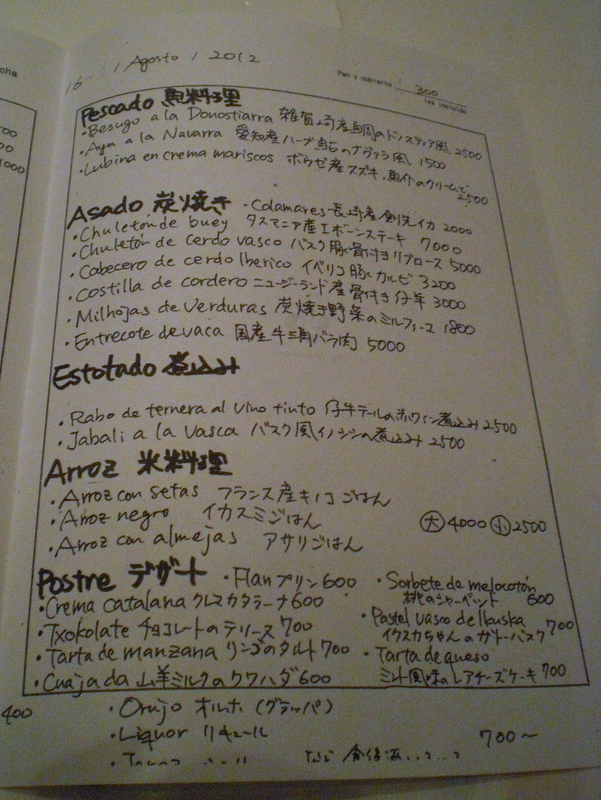 16 / Agosto / 2012
Pan y cubierto 300
iva incluido
Pescado 魚料理
・Besugo a la Donostiarra 雑賀崎産鯛のドノスティア風 2500
・Ayu a la Navarra 愛知産ハーブ鮎のナヴァラ風 1500
・Lubina en crema mariscos ボウゼ産スズキ、魚介のクリームで 2500
Asado 炭焼き ・Calamares 長崎産剣先イカ 2000
・Chuletón de buey タスマニア産Tボーンステーキ 7000
・Chuletón de cerdo vasco バスク豚骨付きリブロース 5000
・Cabecero de cerdo Iberico イベリコ豚カルビ 3200
・Costilla de cordero ニュージーランド産骨付き仔羊 3000
・Milhojas de verduras 炭焼き野菜のミルフィーユ 1800
・Entrecote de vaca 国産牛三角バラ肉 5000
Estotado 煮込み
・Rabo de ternera al vino tinto 仔牛テールの赤ワイン煮込み 2500
・Jabali a la vasca バスク風イノシシの煮込み 2500
Arroz 米料理
・Arroz con setas フランス産キノコごはん
・Arroz negro イカスミごはん
大 4000 小 2500
・Arroz con almejas アサリごはん
Postre デザート ・Flan プリン 600
・Crema catalana クレマカタラーナ 600
・Txokolate チョコレートのテリーヌ 700
・Tarta de manzana リンゴのタルト 700
・Cuajada 山羊ミルクのクワハダ 600
・Sorbete de melocotón
桃のシャーベット 600
・Pastel vasco de Ikuska
イクスカちゃんのガトーバスク 700
・Tarta de queso
ミント風味のレアチーズケーキ 700
400
・Orujo オルホ (グラッパ)
・Liquor リキュール
700～